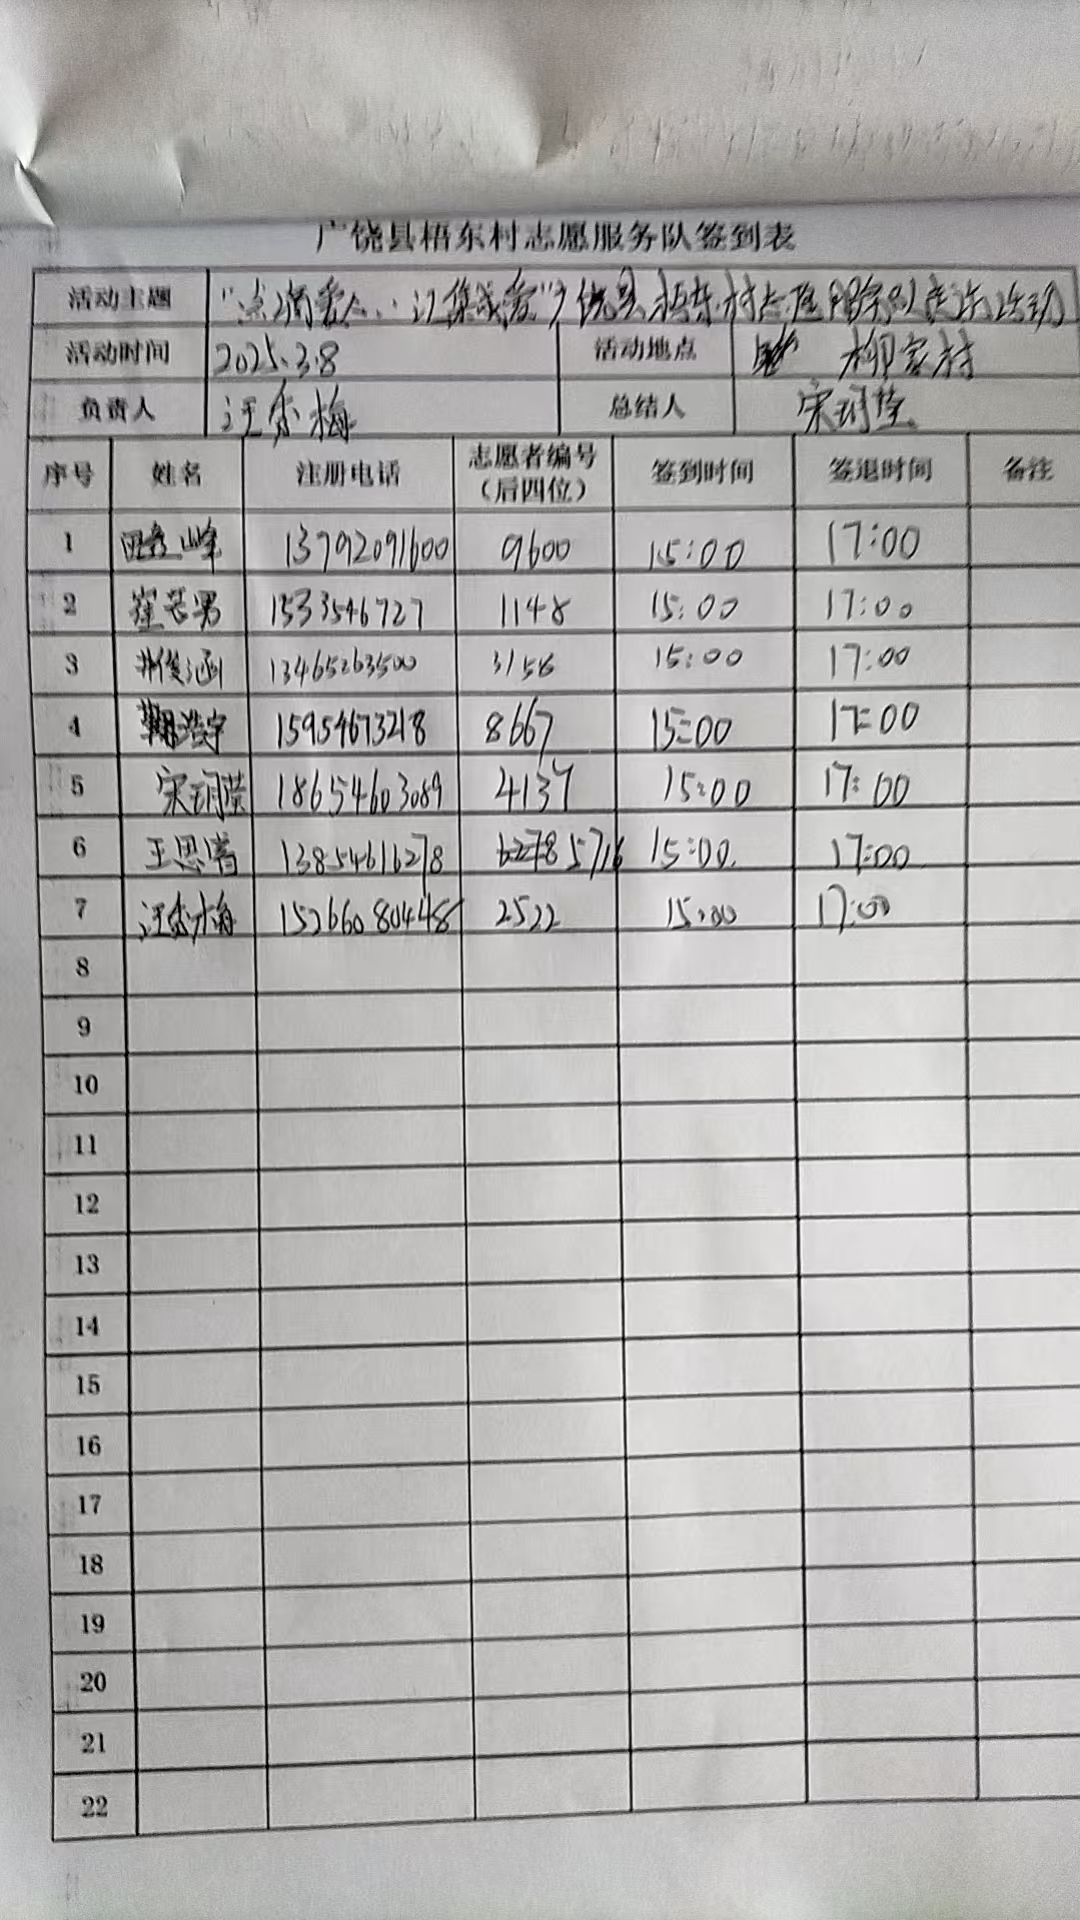 广饶县梧东村志愿服务队签到表
活动主题 "点滴 汇集成爱"广饶县梧东村志愿服务队 活动
活动时间 2025.3.8 活动地点 柳家村
负责人 汪香梅 总结人 宋玥莹
序号 姓名 注册电话 志愿者编号（后四位） 签到时间 签退时间 备注
1 峰 13792091600 9600 15:00 17:00
2 崔芸男 1533546727 1148 15:00 17:00
3 俊涵 13465263500 3158 15:00 17:00
4 浩宇 15954673218 8667 15:00 17:00
5 宋玥莹 18654603089 4137 15:00 17:00
6 王思 13854616278 5716 15:00 17:00
7 汪香梅 15266080448 2522 15:00 17:00
8
9
10
11
12
13
14
15
16
17
18
19
20
21
22